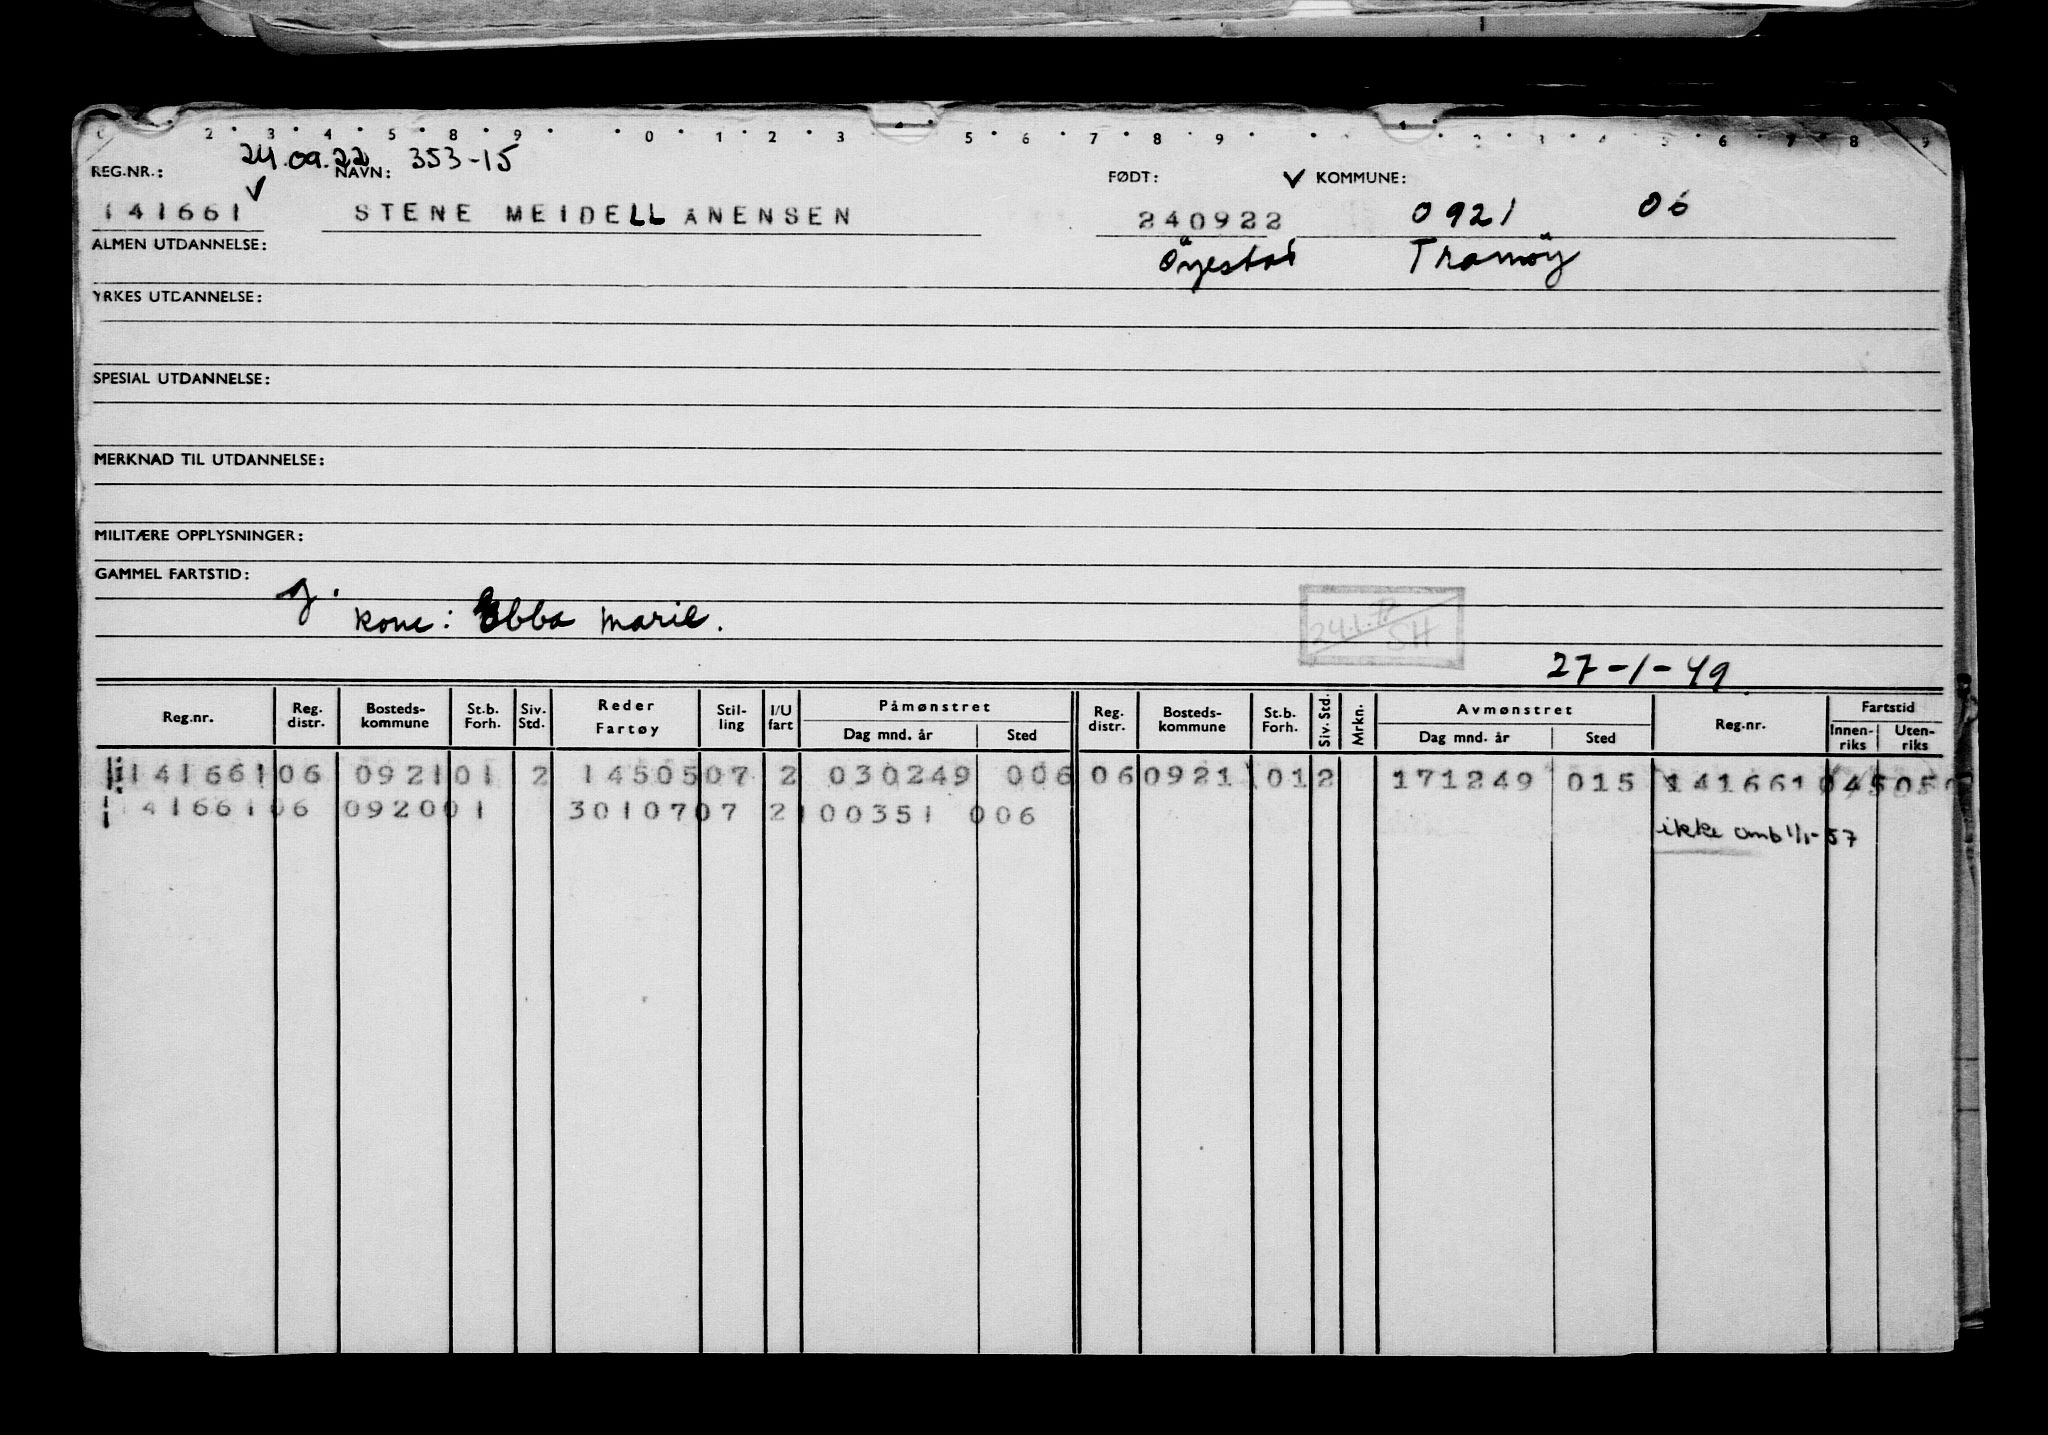 2 3 4 5 8 9 0 1 2 3 5 6 7 8 9 2 3 4 5 6 7 8 9
24.09.22 353-15
REG.NR.: NAVN: FØDT: ✓ KOMMUNE:
✓
141661 STENE MEIDELL ANENSEN 240922 0921 06
ALMEN UTDANNELSE: Öyestad Tromöy
YRKES UTDANNELSE:
SPESIAL UTDANNELSE:
MERKNAD TIL UTDANNELSE:
MILITÆRE OPPLYSNINGER:
GAMMEL FARTSTID:
g.
kone: Ebba Marie.
SH
27-1-49
Reg.nr. Reg. distr. Bosteds-kommune St.b. Forh. Siv. Std. Reder Fartøy Stil-ling I/U fart Påmønstret Dag mnd. år Sted Reg. distr. Bosteds-kommune St.b. Forh. Siv. Std. Mrkn. Avmønstret Dag mnd. år Sted Reg.nr. Fartstid Innen-riks Uten-riks
141661 06 0921 01 2 14505 07 2 030249 006 06 0921 01 2 171249 015 141661 045 05
41661 06 0920 01 30107 07 2 100351 006
ikke omb 1/1-57